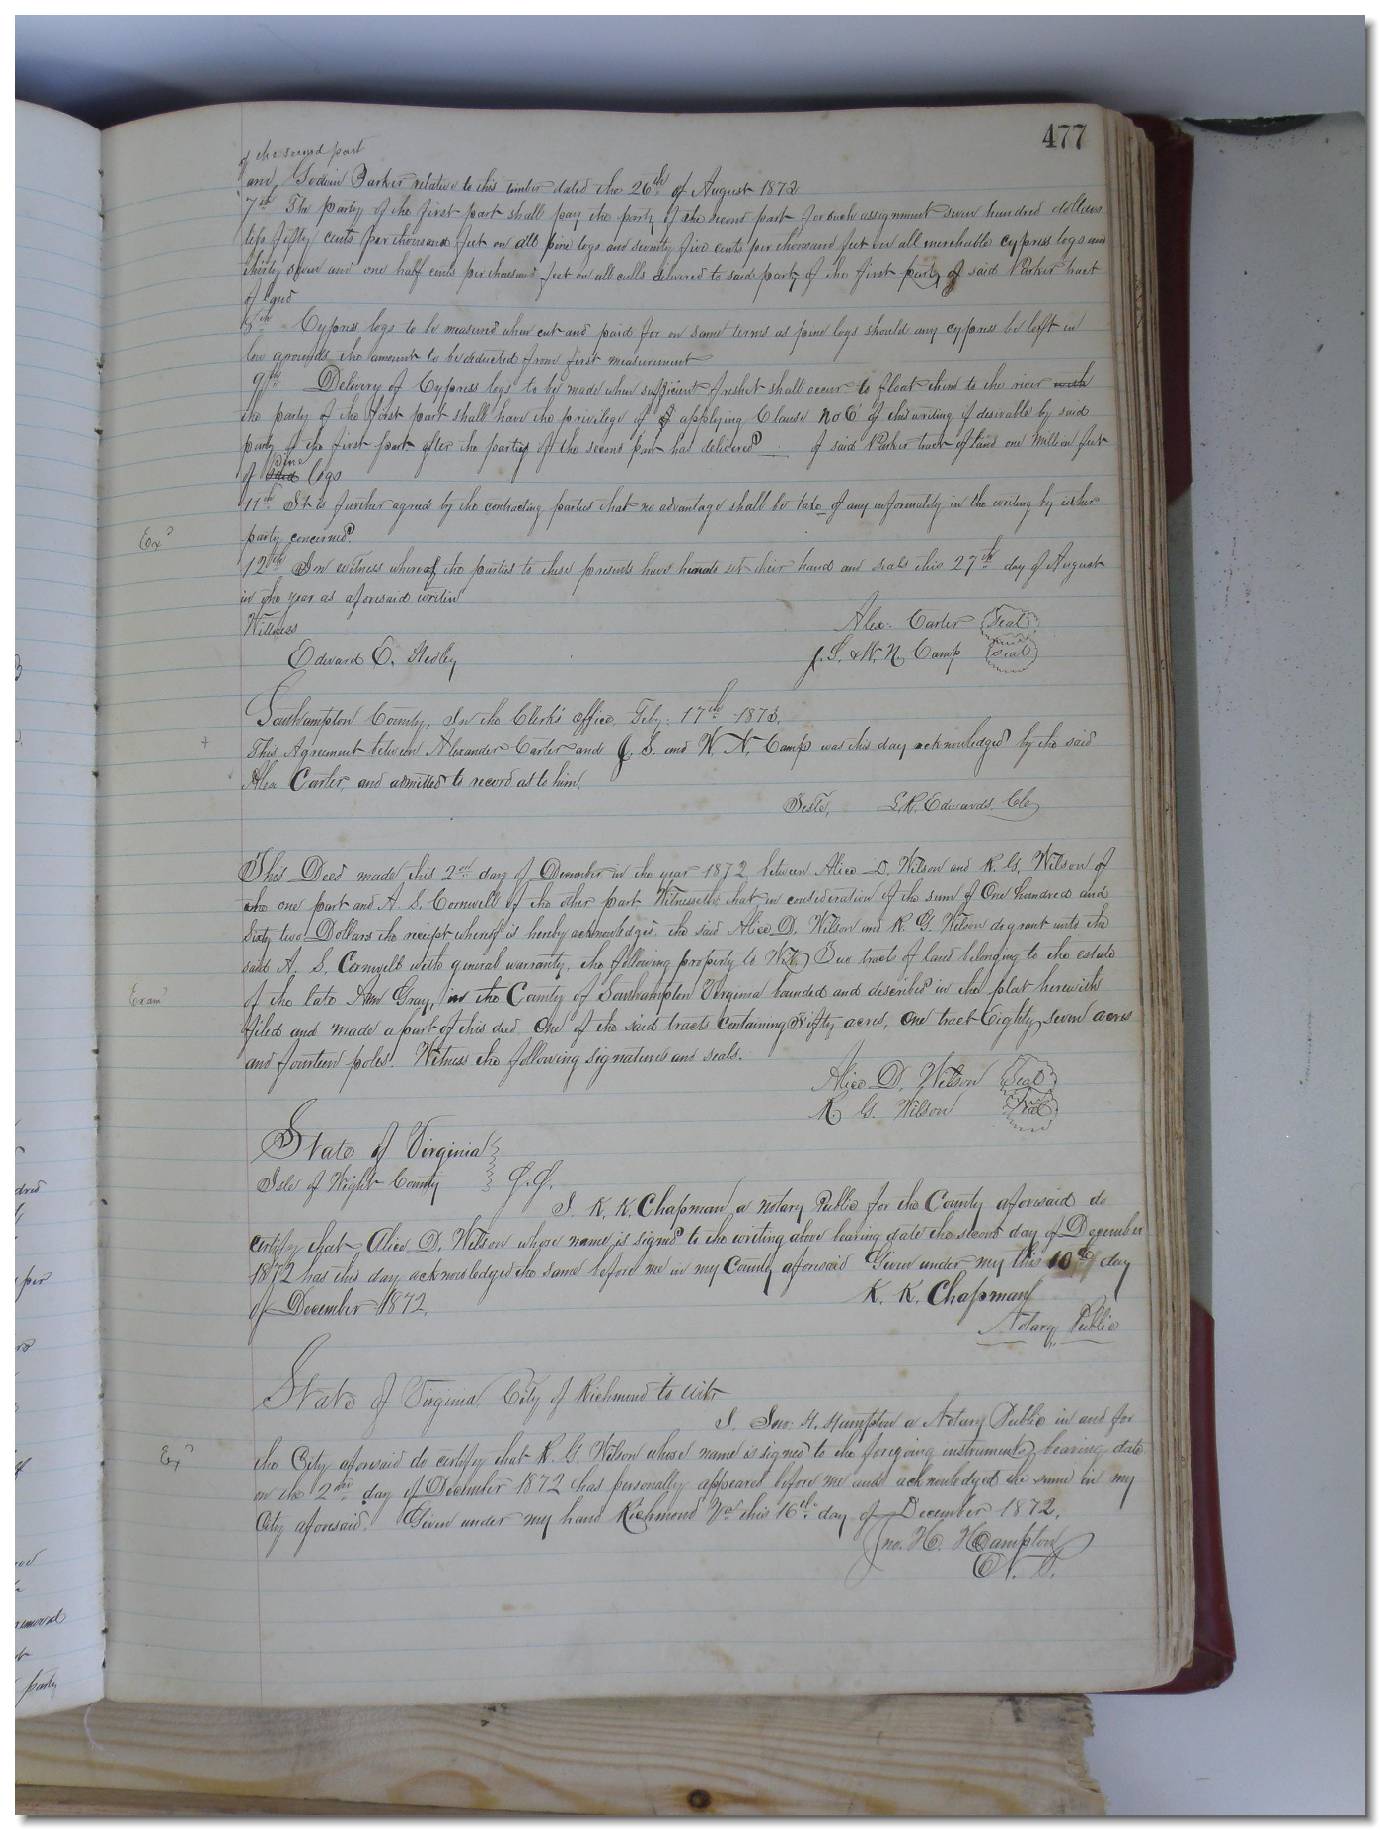 477
of the second part
and Godwin Parker relative to this timber dated the 26th of August 1872
7th The party of the first part shall pay the party of the second part for such assignment seven hundred dollars
less fifty cents per thousand feet on all pine logs and seventy five cents per thousand feet on all merchable cypress logs and
thirty seven and one half cents per thousand feet on all culls delivered to said party of the first party of said Parker tract
of land
8th Cypress logs to be measured when cut and paid for on same terms as pine logs should any cypress be left in
low grounds the amount to be deducted from first measurement
9th Delivery of Cypress logs to be made when sufficient freshet shall occur to float them to the river with
the party of the first part shall have the privilege of applying Clause No 6 of this writing if desirable by said
party of the first part after the parties of the second part has delivered of said Parker tract of land one million feet
of pine logs
11th It is further agreed by the contracting parties that no advantage shall be take of any informality in the writing by either
Exd party concerned.
12th In witness whereof the parties to these presents have hereunto set their hand and seals this 27th day of August
in the year as aforesaid writen
Witness
Alex. Carter Seal
Edward E.
J. S. & W. N. Camp Seal
Southampton County, In the Clerk's office, Feby. 17th 1873.
This Agreement between Alexander Carter and J. S. and W. N. Camp was this day acknowledged by the said
Alex Carter, and admitted to record as to him.
Teste, L. R. Edwards, Clk
This Deed made this 2nd day of December in the year 1872, between Alice D. Wilson and R. G. Wilson of
the one part and A. S. Cornwell of the other part Witnesseth that in consideration of the sum of One hundred and
Sixty two Dollars the receipt whereof is hereby acknowledged, the said Alice D. Wilson and R. G. Wilson do grant unto the
said A. S. Cornwell with general warranty, the following property to Wit, Two tracts of land belonging to the estate
Examd of the late Ann Gray, in the County of Southampton Virginia bounded and described in the plat herewith
filed and made a part of this deed, One of the said tracts containing Fifty acres, One tract Eighty seven acres
and fourteen poles. Witness the following signatures and seals.
Alice D. Wilson Seal
R. G. Wilson Seal
State of Virginia
Isle of Wight County
I. K. K. Chapman, a notary Public for the County aforesaid do
certify that Alice D. Wilson whose name is signed to the writing above bearing date the second day of December
1872 has this day acknowledged the same before me in my County aforesaid Given under my this 10th day
of December 1872.
K. K. Chapman
Notary Public
State of Virginia, City of Richmond to wit
I. Jno. H. Hampton a Notary Public in and for
Exd the City aforesaid do certify that R. G. Wilson whose name is signed to the foregoing instrument, bearing date
on the 2nd day of December 1872 has personally appeared before me and acknowledged the same in my
City aforesaid. Given under my hand Richmond Va this 16th day of December 1872.
Jno. H. Hampton
N. P.